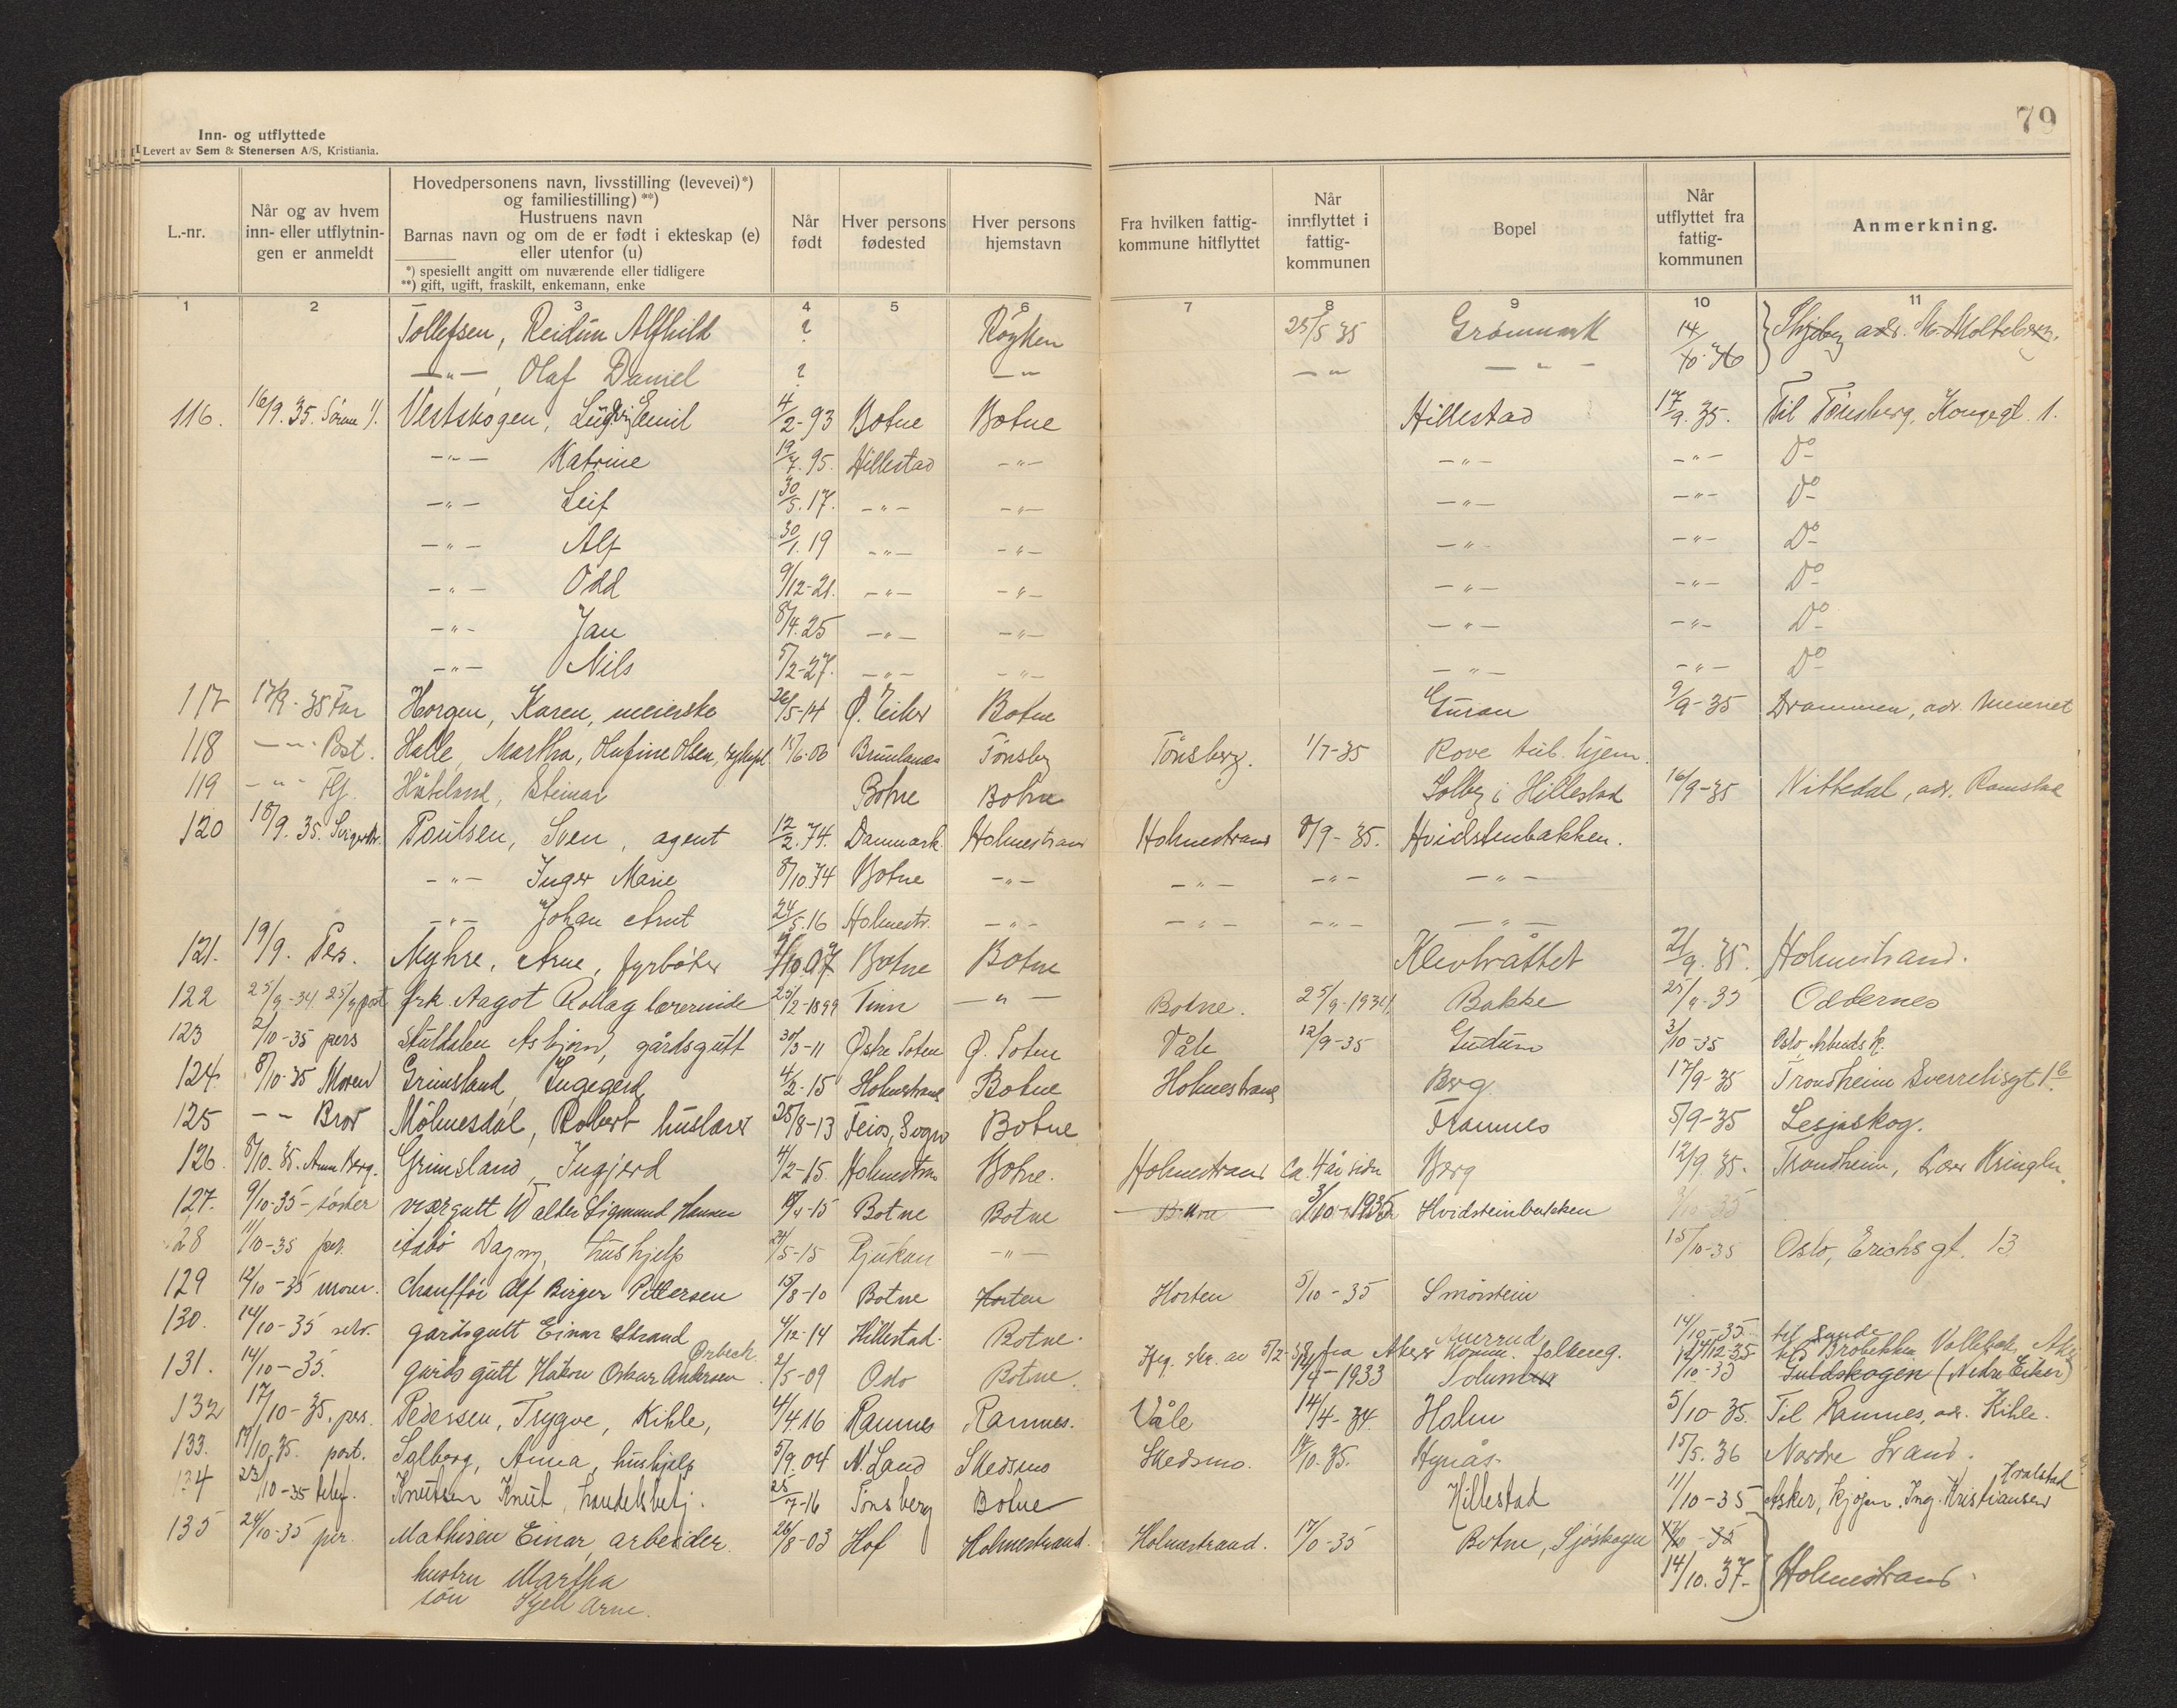 79
Inn- og utflyttede
Levert av Sem & Stenersen A/S, Kristiania.
L.-nr.
Når og av hvem inn- eller utflytnin- gen er anmeldt
Hovedpersonens navn, livsstilling (levevei)*) og familiestilling) **) Hustruens navn Barnas navn og om de er født i ekteskap (e) eller utenfor (u)
*) spesiellt angitt om nuværende eller tidligere
**) gift, ugift, fraskilt, enkemann, enke
Når født
Hver persons fødested
Hver persons hjemstavn
Fra hvilken fattig- kommune hitflyttet
Når innflyttet i fattig- kommunen
Bopel
Når utflyttet fra fattig- kommunen
Anmerkning.
1 2 3 4 5 6 7 8 9 10 11
Tollefsen, Reidun Alfhild ? Røyken 25/5 35 14/10.36
—"— , Olaf Daniel ? —"— —"— —"—
116. 16/9.35. Vestskogen, Ludvig Emil 4/2-93 Botne Botne Hillestad 17/9.35. Til Tønsberg, Kongegt. 1.
—"— Katrine 19/7.95. Hillestad —"— —"— —"— Do
—"— Leif 30/5.17. —"— —"— —"— —"— Do
—"— Alf 30/1.19 —"— —"— —"— —"— Do
—"— Odd 9/12-21. —"— —"— —"— —"— Do
—"— Jan 8/4.25 —"— —"— —"— —"— Do
—"— Nils 5/2-27. —"— —"— —"— —"— Do
117 17/9-35 Far Horgen, Karen, meierske 26/5-14 Ø. Eiker Botne 9/9-35 Drammen, adr. Meieriet
118 —"— Post. Halle, Martha, Olufine Olsen, Brunlanes Tønsberg Tønsberg. 1/7-35 Rove tub. hjem.
119 —"— Steinar Botne Botne Solby i Hillestad 16/9-35 Nittedal, adr.
120 18/9.35. Poulsen, Sven, agent 12/2.74. Danmark. Holmestrand Holmestrand 8/9-35. Hvidstenbakken.
—"— Inger Marie 8/10.74 Botne —"— —"— —"— —"—
—"— Johan Arnt 24/5.16 Holmestr. —"— —"— —"— —"—
121. 19/9. Pers. Myhre, Arne, fyrbøter Botne Botne 21/9.35. Holmestrand.
122 25/9-34 25/9 post frk. Aagot Rollag lærerinde 25/2-1899 Tinn —"— Botne. 25/9-1934 Bakke 25/9-35 Oddernes
123 2/10-35 pers Asbjørn, gårdsgutt 30/3-11 Østre Toten Ø. Toten Våle 12/9-35 Gudum 3/10-35 Oslo Arbeids k.
124. 8/10-35 Moren Grimsland, Ingegerd 4/2-15 Holmestrand Botne Holmestrand Berg 17/9-35 Trondheim
125 — — Bror Mølmesdal, Robert huslærer 25/8-13 Feios, Sogn Botne Framnes 5/9-35 Lesjaskog.
126. 8/10-35. Anna Berg. Grimsland, Ingjerd 4/2-15. Holmestran Botne. Holmestrand Ca. 4 år siden Berg 12/9.35. Trondheim,
127. 9/10-35 - søster visergutt Walter Sigmund Hansen Botne Botne 3/10-1935 Hvidsteinbakken
128 11/10-35 per. Aabø Dagny, hushjelp 24/5-15 Rjukan —"— 15/10-35 Oslo, Erichs gt. 13
129 12/10-35 moren. Chauffør Alf Birger Pettersen 15/8-10 Botne Horten Horten 5/10-35 Smørstein
130. 14/10-35 selv. gårdsgutt Einar Strand 4/12-14 Hillestad. Botne. 14/10-35 til Sande
131. 14/10-35. gårdsgutt Håkon Oskar Andersen Ørbeck 2/5-09 Oslo Botne. 1933 Solum (Nedre Eiker)
132 17/10-35. pers. Pedersen, Trygve, Kihle, 4/4.16 Ramnes Ramnes. Våle 14/4-34. Holm 5/10-35. Til Ramnes, adr. Kihle.
133. 19/10.35. post. Salberg, Anna, hushjelp 5/9.04 N. Land Skedsmo Skedsmo. Hynås 15/5.36 Nordre Land.
134 23/10-35 telef. Knutsen Knut, handelsbetj. 25/7-16 Tønsberg Botne Hillestad 11/10-35 Asker, Ing. Kristiansen
135 24/10-35 per. Mathisen Einar, arbeider. 26/8-03 Hof Holmestrand. Holmestrand. 17/10-35 Botne, Sjøskogen 17/10-35
hustru Martha 14/10.37- Holmestrand.
søn Kjell Arne.